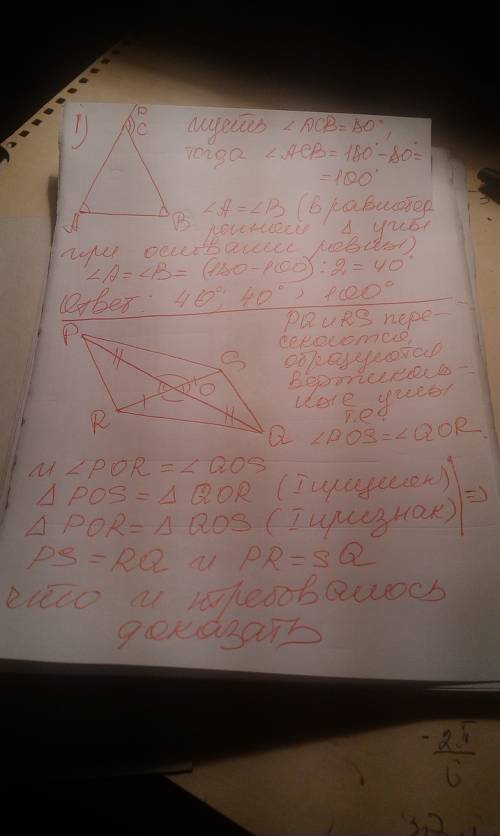 1)
D
C
A
B
пусть ∠ACB = 80°,
тогда ∠ACB = 180° - 80° =
= 100°
∠A = ∠B (в равнобед
ренном Δ углы
при основании равны)
∠A = ∠B = (180 - 100) : 2 = 40°
Ответ: 40°, 40°, 100°
P
S
R
O
Q
PQ и RS пере-
секаются,
образуются
вертикаль-
ные углы
т.е.
∠POS = ∠QOR.
и ∠POR = ∠QOS
Δ POS = Δ QOR (I признак)
Δ POR = Δ QOS (I признак) =>
PS = RQ и PR = SQ
что и требовалось
доказать